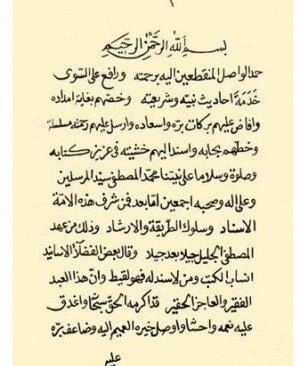 ١
بسم الله الرحمن الرحيم
حمدا لواصل المنقطعين اليه برحمته ورافع على السوى
خدمة احاديث نبيه وشريعته وخصهم بغاية امداده
وافاض عليهم بركات بره واسعاده وارسل عليهم رحمته مسلسلة
وخطهم بجابه واسند اليهم خشيته في عزيز كتابه
وصلوة وسلاما على نبينا محمد المصطفى سيد المرسلين
وعلى اله وصحبه اجمعين اما بعد فمن شرف هذه الامة
الاسناد وسلوك الطريقة والارشاد وذلك من عهد
المصطفى الجليل جيلا بعد جيلا وقال بعض الفضلاء الاسانيد
انساب الكتب ومن لا سند له فهو لقيط وان هذا العبد
الفقير والعاجز الحقير قد اكرمه الحق سبحانه واغدق
عليه نعمه واحسانا واوصل خيره العميم اليه وضاعف بره
عليه